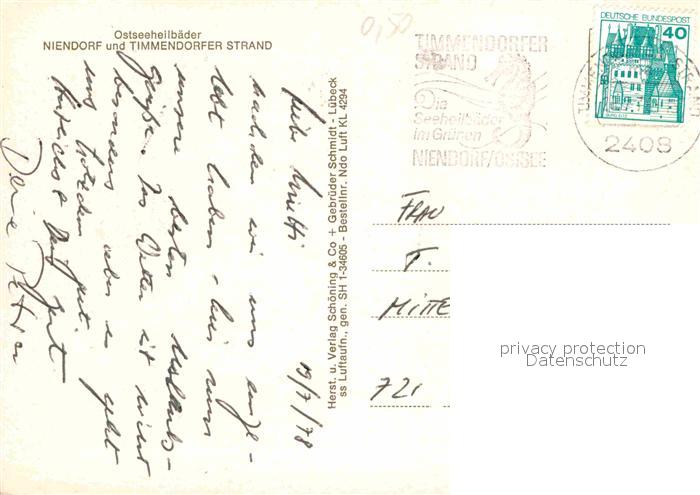 Ostseeheilbäder
NIENDORF und TIMMENDORFER STRAND
0,50
TIMMENDORFER
STRAND
Die
Seeheilbäder
im Grünen
NIENDORF/OSTSEE
DEUTSCHE BUNDESPOST
40
BURG ELTZ
2408
Herst. u. Verlag Schöning & Co + Gebrüder Schmidt - Lübeck
ss Luftaufn., gen. SH 1-34605 - Bestellnr. Ndo Luft KL 4294
19/7/78
Liebe Mutti
nachdem wir uns einge-
lebt haben, hier nun
unsere besten Urlaubs-
Grüße. Das Wetter ist nicht
besonders aber es geht
uns trotzdem gut.
Herzlichst
Deine
FRAU
T.
MITTE
721
privacy protection
Datenschutz